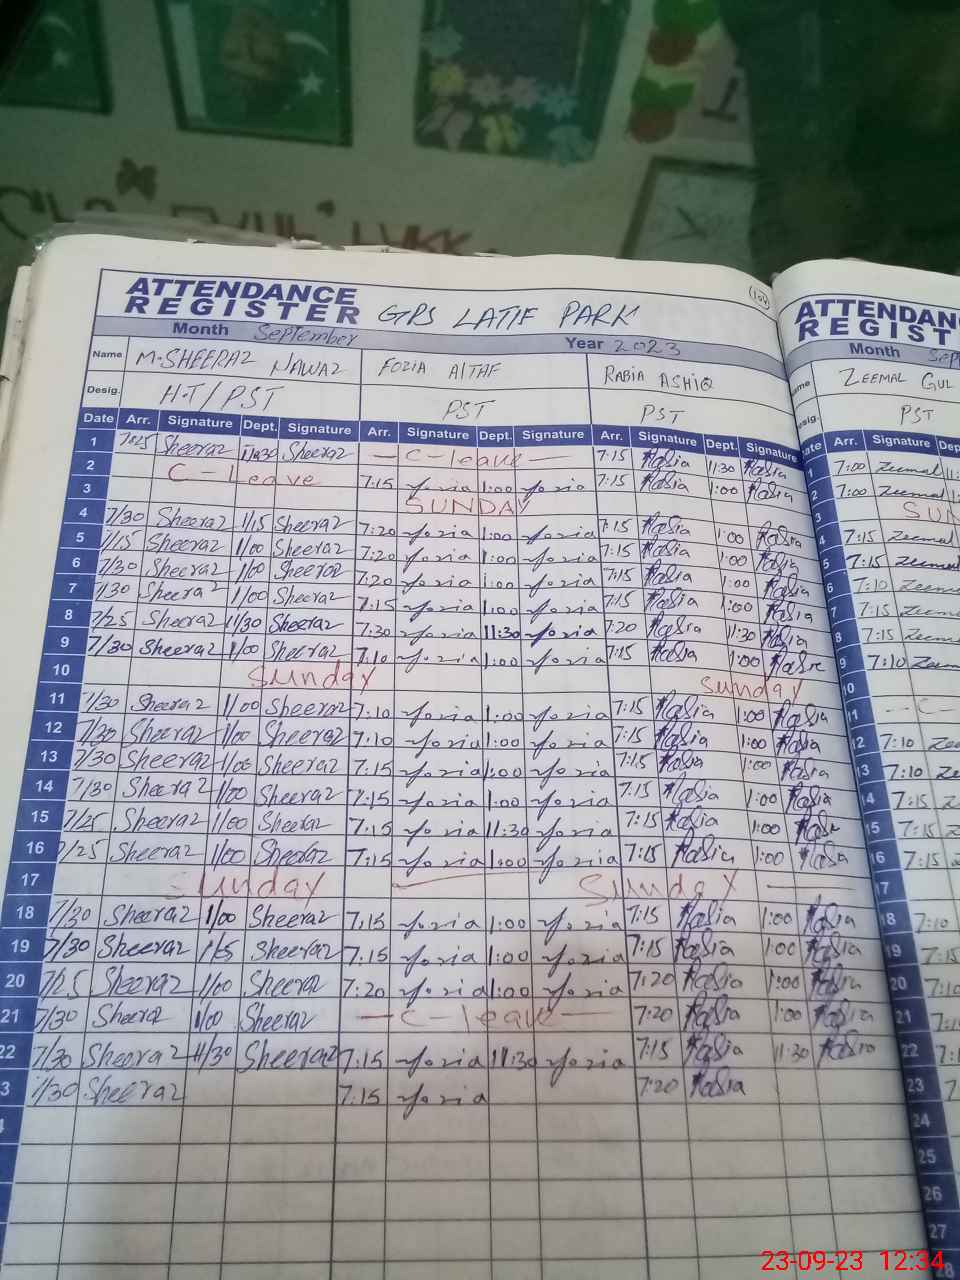 (109)
ATTENDANCE REGISTER GPS LATIF PARK
Month September Year 2023
Name M.SHEERAZ NAWAZ FOZIA AlTAF RABIA ASHIQ
Desig. H.T/PST PST PST
Date Arr. Signature Dept. Signature Arr. Signature Dept. Signature Arr. Signature Dept. Signature
1 7:25 Sheeraz 11:30 Sheeraz — C-leave — 7:15 Rabia 11:30 Rabia
2 C-Leave 7:15 fozia 1:00 fozia 7:15 Rabia 1:00 Rabia
3 SUNDAY
4 7/30 Sheeraz 1/15 Sheeraz 7:20 fozia 1:00 fozia 7:15 Rabia 1:00 Rabia
5 7/15 Sheeraz 1/00 Sheeraz 7:20 fozia 1:00 fozia 7:15 Rabia 1:00 Rabia
6 7/30 Sheeraz 1/00 Sheeraz 7:20 fozia 1:00 fozia 7:15 Rabia 1:00 Rabia
7 7/30 Sheeraz 1/00 Sheeraz 7:15 fozia 1:00 fozia 7:15 Rabia 1:00 Rabia
8 7/25 Sheeraz 11/30 Sheeraz 7:30 fozia 11:30 fozia 7:20 Rabia 11:30 Rabia
9 7/30 Sheeraz 1/00 Sheeraz 7:10 fozia 1:00 fozia 7:15 Rabia 1:00 Rabia
10 Sunday Sunday
11 7/30 Sheeraz 1/00 Sheeraz 7:10 fozia 1:00 fozia 7:15 Rabia 1:00 Rabia
12 7/30 Sheeraz 1/00 Sheeraz 7:10 fozia 1:00 fozia 7:15 Rabia 1:00 Rabia
13 7/30 Sheeraz 1/00 Sheeraz 7:15 fozia 1:00 fozia 7:15 Rabia 1:00 Rabia
14 7/30 Sheeraz 1/00 Sheeraz 7:15 fozia 1:00 fozia 7:15 Rabia 1:00 Rabia
15 7/25 Sheeraz 1/00 Sheeraz 7:15 fozia 11:30 fozia 7:15 Rabia 1:00 Rabia
16 7/25 Sheeraz 1/00 Sheeraz 7:15 fozia 1:00 fozia 7:15 Rabia 1:00 Rabia
17 Sunday Sunday
18 7/30 Sheeraz 1/00 Sheeraz 7:15 fozia 1:00 fozia 7:15 Rabia 1:00 Rabia
19 7/30 Sheeraz 1/15 Sheeraz 7:15 fozia 1:00 fozia 7:15 Rabia 1:00 Rabia
20 7/25 Sheeraz 1/00 Sheeraz 7:20 fozia 1:00 fozia 7:20 Rabia 1:00 Rabia
21 7/30 Sheeraz 1/00 Sheeraz — C-leave — 7:20 Rabia 1:00 Rabia
22 7/30 Sheeraz 11/30 Sheeraz 7:15 fozia 11:30 fozia 7:15 Rabia 11:30 Rabia
3 7/30 Sheeraz 7:15 fozia 7:20 Rabia
ATTENDANC
REGIST
Month Sep
ame ZEEMAL GUL
esig. PST
ate Arr. Signature Dep
1 7:00 Zeemal 11:
2 7:00 Zeemal 1:
3 SUN
4 7:15 Zeemal
5 7:15 Zeemal
6 7:10 Zeema
7 7:15 Zeema
8 7:15 Zeema
9 7:10 Zeem
10
11 — C —
12 7:10 Zee
13 7:10 Ze
14 7:15 Z
15 7:15 Z
16 7:15
17
18 7:10
19 7:15
20 7:10
21 7:1
22 7:
23 7
24
25
26
27
28
23-09-23 12:34